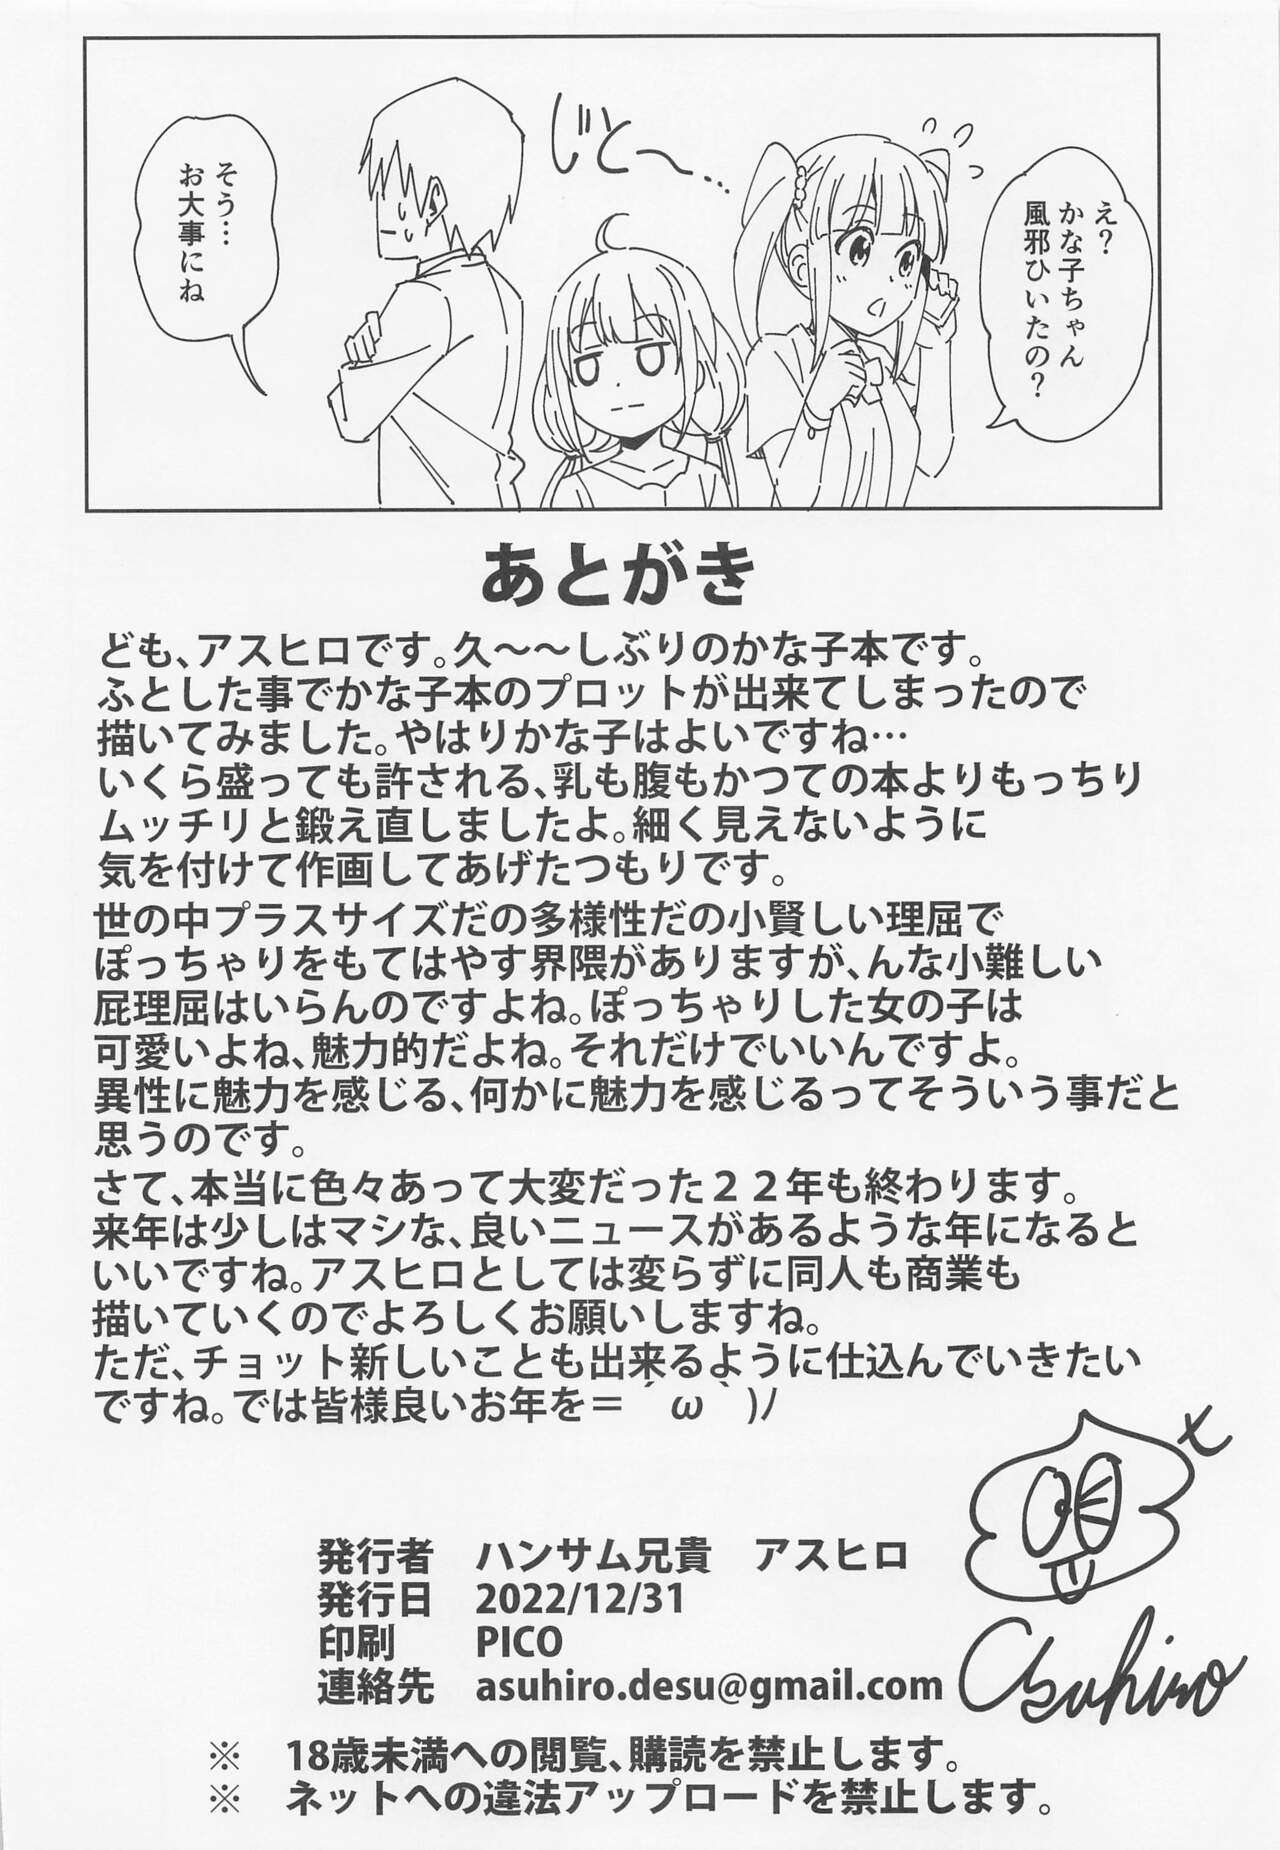 え?
かな子ちゃん
風邪ひいたの?
じと〜…
そう…
お大事にね
あとがき
ども、アスヒロです。久〜〜しぶりのかな子本です。
ふとした事でかな子本のプロットが出来てしまったので
描いてみました。やはりかな子はよいですね…
いくら盛っても許される、乳も腹もかつての本よりもっちり
ムッチリと鍛え直しましたよ。細く見えないように
気を付けて作画してあげたつもりです。
世の中プラスサイズだの多様性だの小賢しい理屈で
ぽっちゃりをもてはやす界隈がありますが、んな小難しい
屁理屈はいらんのですよね。ぽっちゃりした女の子は
可愛いよね、魅力的だよね。それだけでいいんですよ。
異性に魅力を感じる、何かに魅力を感じるってそういう事だと
思うのです。
さて、本当に色々あって大変だった２２年も終わります。
来年は少しはマシな、良いニュースがあるような年になると
いいですね。アスヒロとしては変らずに同人も商業も
描いていくのでよろしくお願いしますね。
ただ、チョット新しいことも出来るように仕込んでいきたい
ですね。では皆様良いお年を＝´ω｀)ﾉ
発行者 ハンサム兄貴 アスヒロ
発行日 2022/12/31
印刷 PICO
連絡先 asuhiro.desu@gmail.com
Asuhiro
※ 18歳未満への閲覧、購読を禁止します。
※ ネットへの違法アップロードを禁止します。